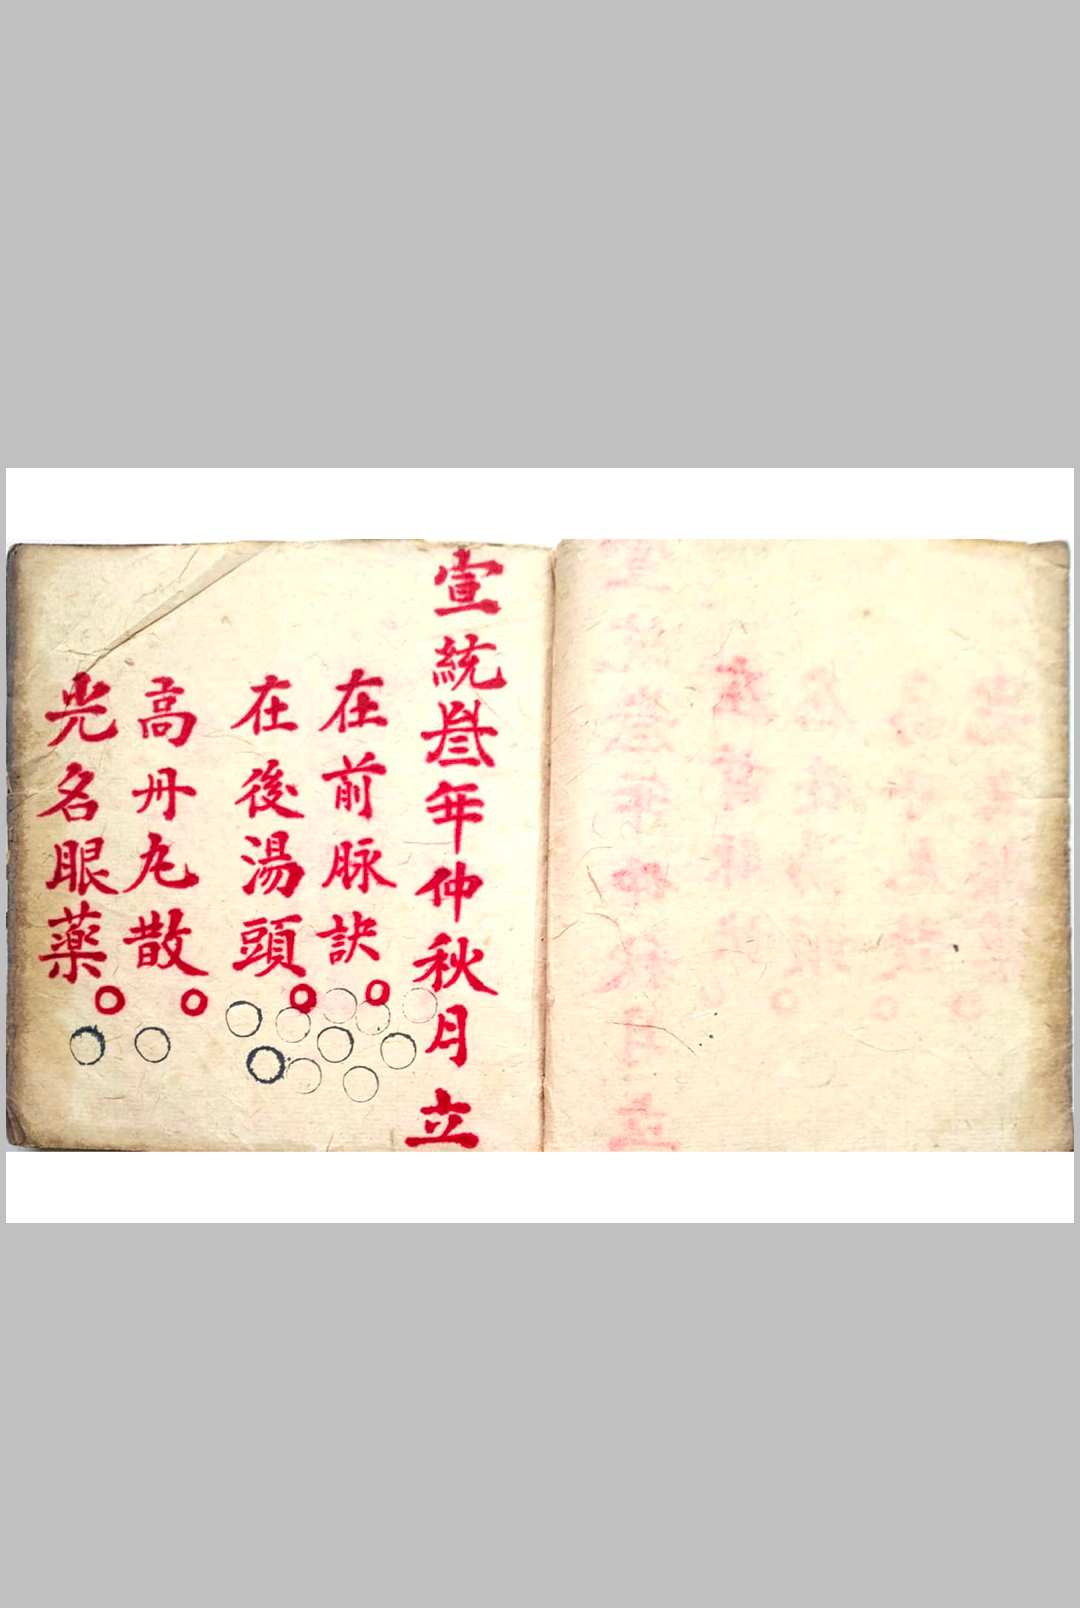 宣統叄年仲秋月立
在前脉訣
在後湯頭
高丹丸散
光名眼藥